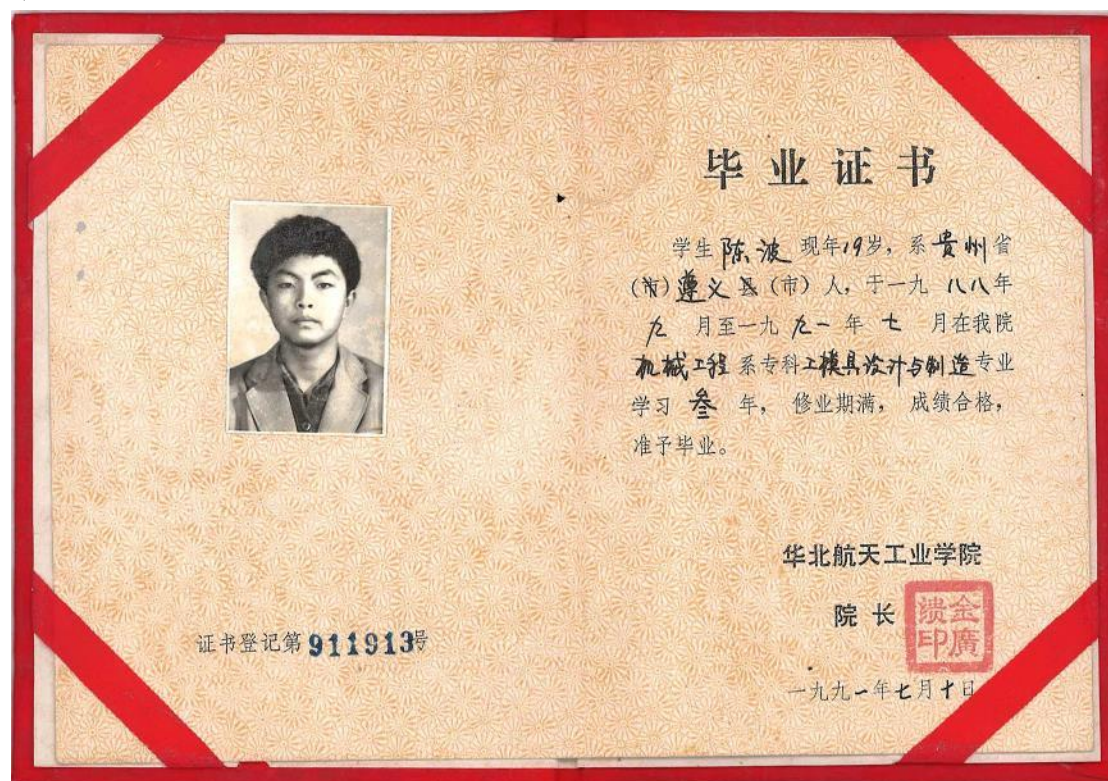 毕业证书
学生陈波现年19岁，系贵州省
（市）遵义县（市）人，于一九八八年
九月至一九九一年七月在我院
机械工程系专科工模具设计与制造专业
学习叁年，修业期满，成绩合格，
准予毕业。
华北航天工业学院
院长
金廣
溃印
一九九一年七月十日
证书登记第911913号